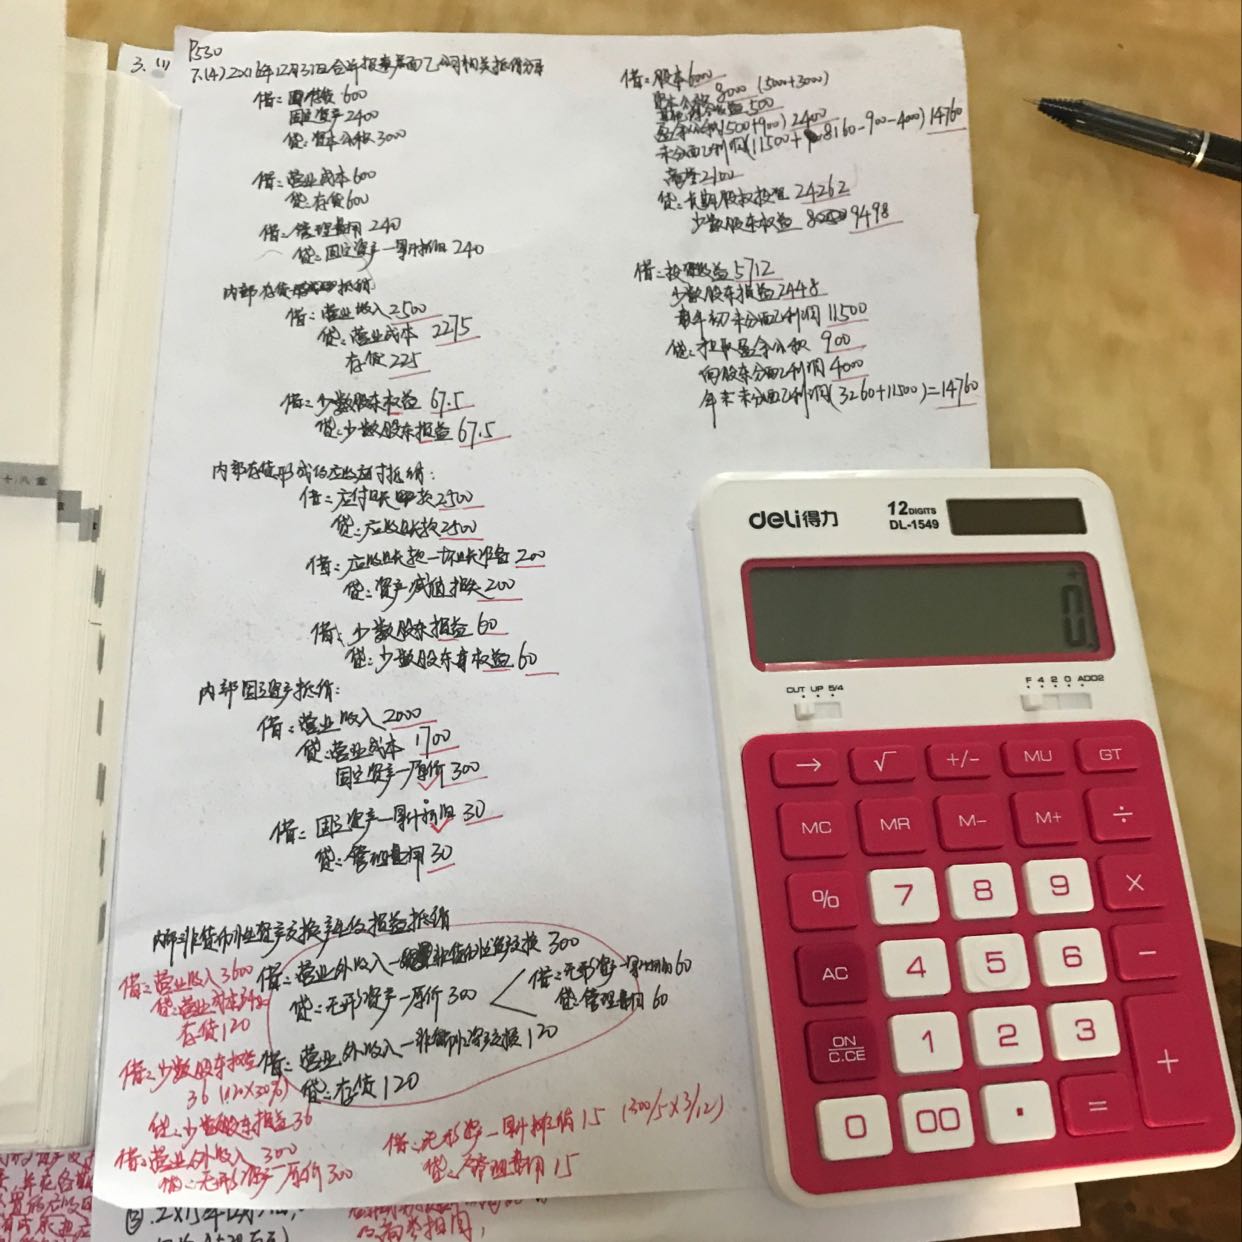 P530
3. (1)
7.(4) 2×16年12月31日合并报表层面乙公司相关抵销分录
借:存货 600
固定资产 2400
贷:资本公积 3000
借:营业成本 600
贷:存货 600
借:管理费用 240
贷:固定资产—累计折旧 240
内部存货抵销:
借:营业收入 2500
贷:营业成本 2275
存货 225
借:少数股东权益 67.5
贷:少数股东损益 67.5
内部存货形成的应收应付抵销:
借:应付账款 2500
贷:应收账款 2500
借:应收账款—坏账准备 200
贷:资产减值损失 200
借:少数股东损益 60
贷:少数股东权益 60
内部固定资产抵销:
借:营业收入 2000
贷:营业成本 1700
固定资产—原价 300
借:固定资产—累计折旧 30
贷:管理费用 30
内部非货币性资产交换产生的损益抵销
借:营业外收入—非货币性资产交换 300
贷:无形资产—原价 300
借:无形资产—累计摊销 60
贷:管理费用 60
借:营业外收入—非货币性资产交换 120
贷:存货 120
借:营业收入 3600
贷:营业成本
存货 120
借:少数股东权益
36 (120×30%)
贷:少数股东损益 36
借:营业外收入 300
贷:无形资产—原价 300
借:无形资产—累计摊销 15 (300/5×3/12)
贷:管理费用 15
借:股本 6000
资本公积 8000 (5000+3000)
其他综合收益 500
盈余公积(1500+900) 2400
未分配利润(11500+8160-900-4000) 14760
商誉 2100
贷:长期股权投资 24262
少数股东权益 9498
借:投资收益 5712
少数股东损益 2448
年初未分配利润 11500
贷:提取盈余公积 900
向股东分配利润 4000
年末未分配利润(3260+11500)=14760
十八章
deli得力
12DIGITS
DL-1549
0.
CUT UP 5/4
F 4 2 0 ADD2
→ √ +/- MU GT
MC MR M- M+ ÷
% 7 8 9 ×
AC 4 5 6 -
ON/C.CE 1 2 3 +
0 00 · =